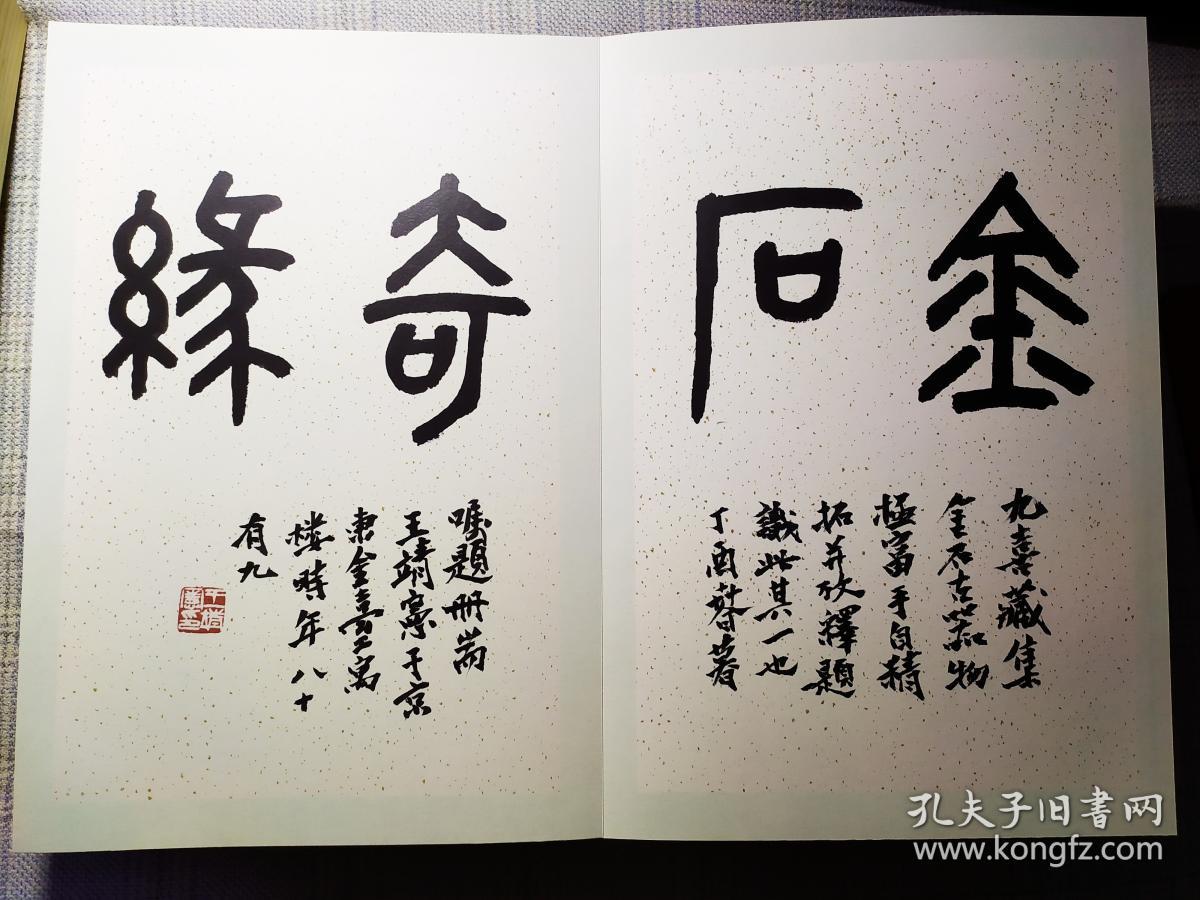 金石
奇緣
九喜藏集
金石古器物
極富手自精
拓并攷釋題
識此其一也
丁酉暮春
囑題册耑
王靖憲于京
東金臺寓
樓時年八十
有九
孔夫子旧书网
www.kongfz.com